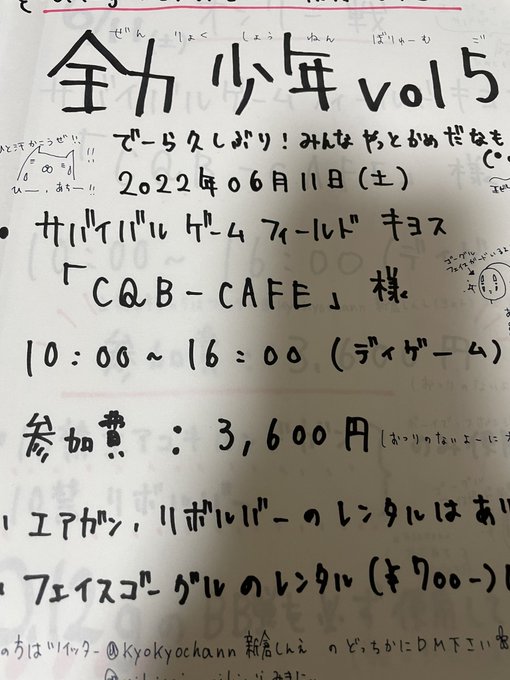 ぜんりょくしょうねんばりゅーむ ご
全力少年 vol 5
でーら久しぶり！みんなやっとかめだなも
ひと汗かこうぜ!! !!
ひー、あちー!!
2022年06月11日(土)
• サバイバルゲームフィールド キヨス
「CQB-CAFE」様
ゴーグル
10:00〜16:00 (デイゲーム)
参加費：3,600円(おつりのないよーに
エアガン、リボルバーのレンタルはあ
フェイスゴーグルのレンタル(¥700-)
の方はツイッター@Kyokyochann 新倉しんえ のどっちかにDM下さい